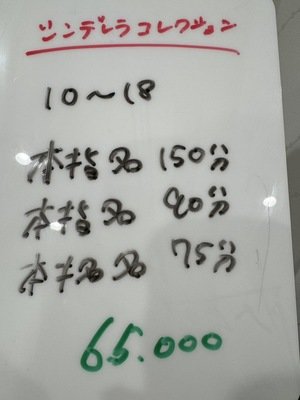 シンデレラコレクション
10～18
本指名 150分
本指名 90分
本指名 75分
65.000